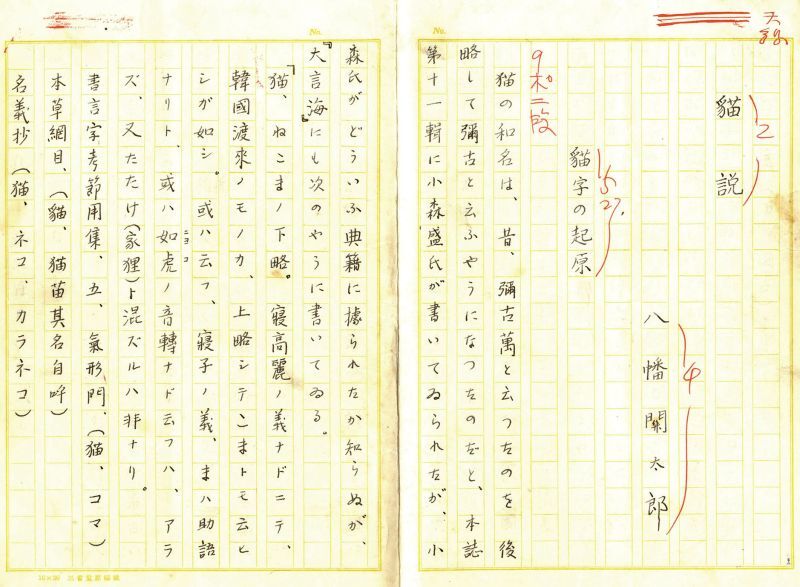 貓説
八幡關太郎
貓字の起原
猫の和名は、昔、彌古萬と云つたのを後
略して彌古と云ふやうになつたのだと、本誌
第十一輯に小森盛氏が書いてゐられたが、小
森氏がどういふ典籍に據られたか知らぬが、
『大言海』にも次のやうに書いてゐる。
「猫」ねこまノ下略。寢高麗ノ義ナドニテ、
韓國渡來ノモノカ、上略シテこまトモ云ヒ
シガ如シ。或ハ云フ、寢子ノ義、まハ助語
ナリト、或ハ如虎ノ音轉ナド云フハ、アラ
ニヨコ
ズ、又たたけ(家狸)ト混ズルハ非ナリ。
書言字考節用集、五、氣形門、(猫、コマ)
本草綱目、(貓、猫苗其名自呼)
名義抄(猫、ネコ、カラネコ)
No.
No.
12
4
9ポ二段
10×20